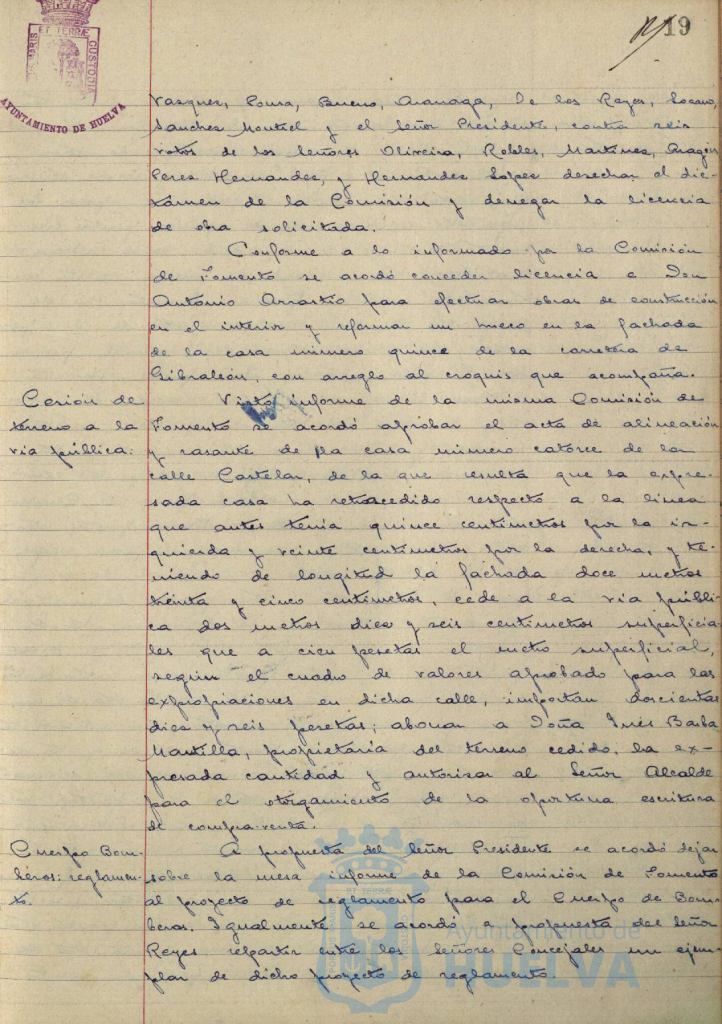 19
PORTUS MARIS ET TERRÆ CUSTODIA
AYUNTAMIENTO DE HUELVA
Vasquez, Bueno, Aranaga, De los Reyes,
Sanchez Montiel y el Señor Presidente, contra seis
votos de los Señores Oliveira, Robles, Martinez, Aragón
Perez Hernandez, y Hernandez Lopez desechar el dic-
támen de la Comisión y denegar la licencia
de obra solicitada.
Conforme a lo informado por la Comisión
de Fomento se acordó conceder licencia a Don
Antonio para efectuar obras de construcción
en el interior y reformar un hueco en la fachada
de la casa número quince de la carretera de
Gibraleón, con arreglo al croquis que acompaña.
Cesión de
terreno a la
via pública.
Visto informe de la misma Comisión de
Fomento se acordó aprobar el acta de alineación
y rasante de la casa número catorce de la
calle Castelar, de la que resulta que la expre-
sada casa ha retrocedido respecto a la linea
que antes tenia quince centimetros por la iz-
quierda y veinte centimetros por la derecha, y te-
niendo de longitud la fachada doce metros
treinta y cinco centimetros, cede a la via públi-
ca dos metros diez y seis centimetros superficia-
les que a cien pesetas el metro superficial,
según el cuadro de valores aprobado para las
expropiaciones en dicha calle, importan doscientas
diez y seis pesetas; abonar a Doña Inés Barba
Mantilla, propietaria del terreno cedido, la ex-
presada cantidad y autorizar al Señor Alcalde
para el otorgamiento de la oportuna escritura
de compra-venta.
Cuerpo Bom-
beros: reglamen-
to.
A propuesta del Señor Presidente se acordó dejar
sobre la mesa informe de la Comisión de Fomento
al proyecto de reglamento para el Cuerpo de Bom-
beros. Igualmente se acordó a propuesta del Señor
Reyes repartir entre los Señores Concejales un ejem-
plar de dicho proyecto de reglamento.
Ayuntamiento de
HUELVA